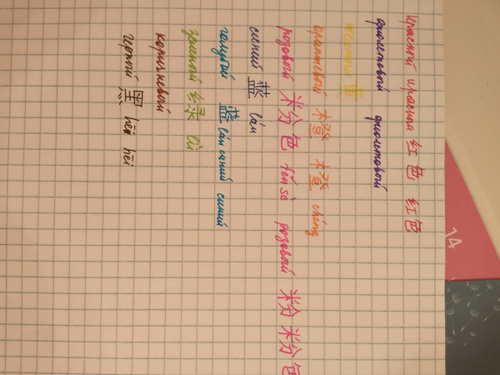 красный красная 红色 红色
фиолетовый фиолетовый
желтый 黄
оранжевый 橙 橙 chéng
розовый 粉色 fěn sè розовый 粉 粉色
синий 蓝 lán
голубой 蓝 lán синий синий
зеленый 绿 lǜ
коричневый
черный 黑 hēi hēi
14